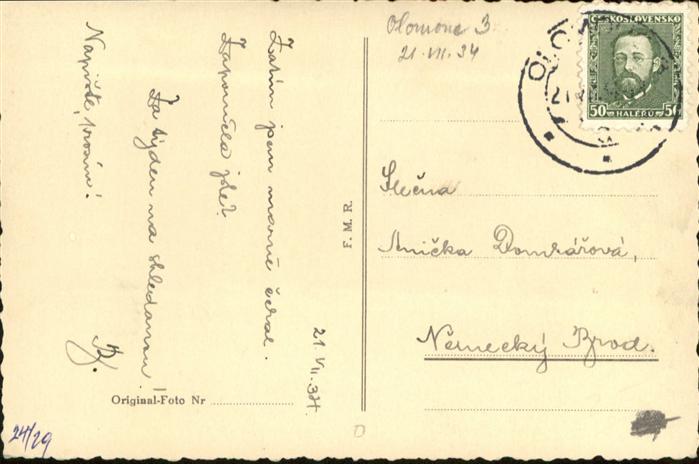 Olomouc 3
21. VII. 34
ČESKOSLOVENSKO
50 HALÉŘŮ 50
OLOMOUC
Zatím jsem marně čekal.
Zapomněla jste?
Za týden na shledanou!
Napište, prosím!
B.
21. VII. 34.
F. M. R.
Original-Foto Nr
Slečna
Anička Domkářová,
Německý Brod.
24/29